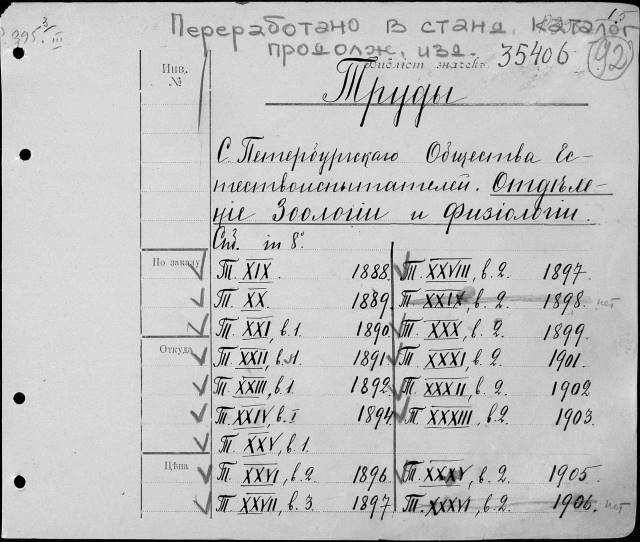 Переработано в станд. каталог
продолж. изд. 35406
1.5
92
395.
Инв.
№
Библіот. значекъ
Труды
С. Петербургскаго Общества Ес-
тествоиспытателей. Отдѣле-
ніе Зоологіи и Физіологіи.
Спб. in 8°
По заказу
Откуда
Цѣна
Т. XIX. 1888.
Т. XX. 1889.
Т. XXI, в.1. 1890.
Т. XXII, в.1. 1891.
Т. XXIII, в.1. 1892.
Т. XXIV, в.I 1894.
Т. XXV, в.1.
Т. XXVI, в.2. 1896.
Т. XXVII, в.3. 1897.
Т. XXVIII, в.2. 1897.
Т. XXIX, в.2. 1898. нет
Т. XXX, в.2. 1899.
Т. XXXI, в.2. 1901.
Т. XXXII, в.2. 1902
Т. XXXIII, в.2. 1903.
Т. XXXV, в.2. 1905.
Т. XXXVI, в.2. 1906. нет